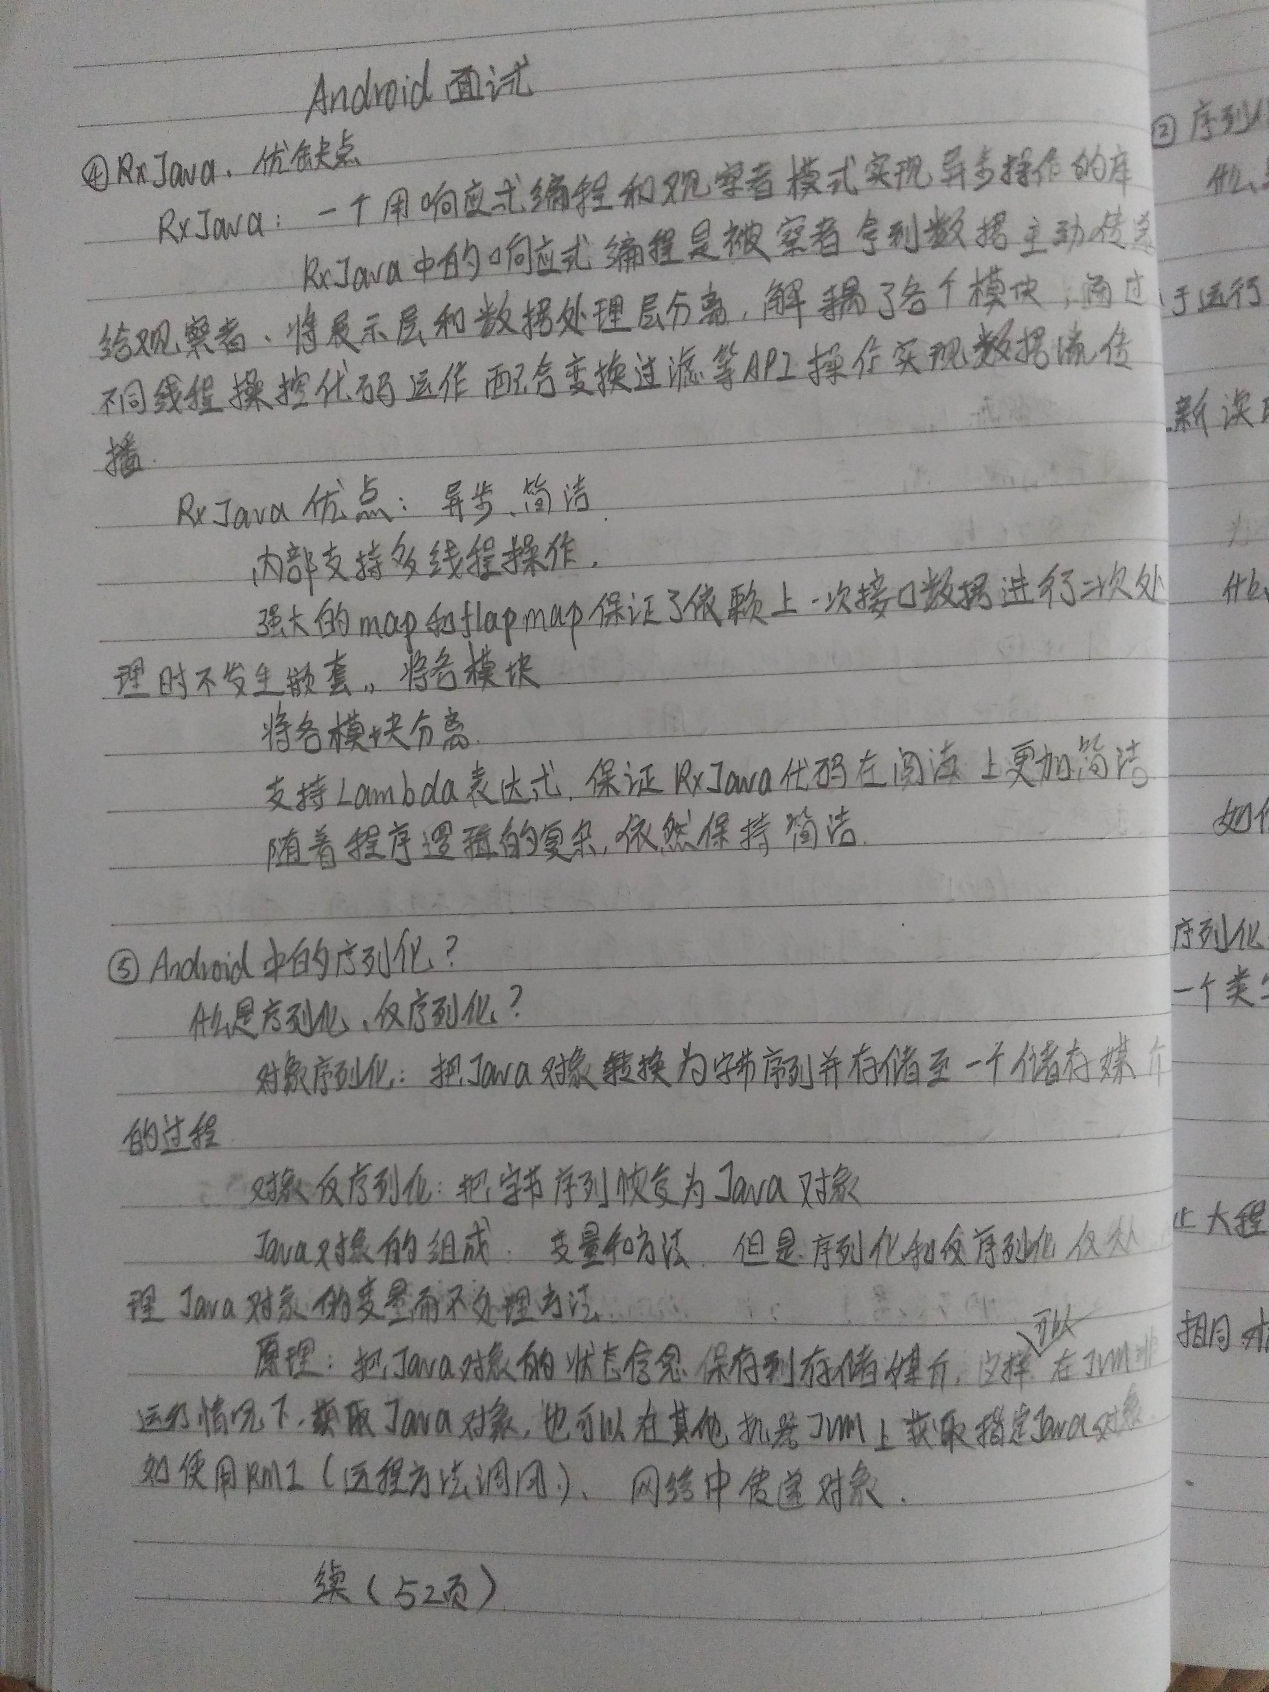 Android 面试
④RxJava、优缺点
RxJava：一个用响应式编程和观察者模式实现异步操作的库
RxJava中的响应式编程是被察者拿到数据主动传递
给观察者、将展示层和数据处理层分离，解耦了各个模块，通过
不同线程操控代码运作配合变换过滤等API操作实现数据流传
播.
RxJava 优点：异步、简洁
内部支持多线程操作.
强大的map和flapmap保证了依赖上一次接口数据进行二次处
理时不发生嵌套,, 将各模块
将各模块分离.
支持Lambda表达式,保证RxJava代码在阅读上更加简洁
随着程序逻辑的复杂,依然保持简洁.
⑤Android中的序列化?
什么是序列化、反序列化?
对象序列化：把Java对象转换为字节序列并存储至一个储存媒介
的过程
对象反序列化：把字节序列恢复为Java对象
Java对象的组成. 变量和方法. 但是序列化和反序列化仅处
理Java对象的变量而不处理方法
可以
原理：把Java对象的状态信息保存到存储媒介,这样 在JVM非
运行情况下,获取Java对象,也可以在其他机器JVM上获取指定Java对象.
如使用RMI(远程方法调用)、网络中传递对象.
续(52页)
②序列化
什么
于运行
新读
什么
如何
序列化
一个类
上大程
相同